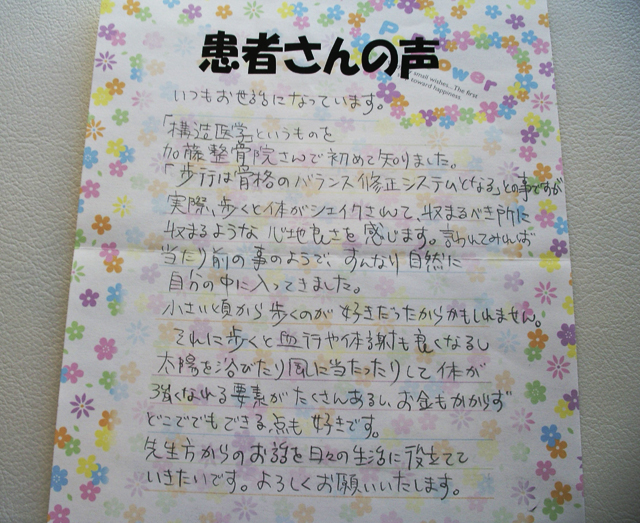 患者さんの声
Power
small wishes... The first
toward happiness
いつもお世話になっています。
「構造医学」というものを
加藤整骨院さんで初めて知りました。
「歩行は骨格のバランス修正システムとなる」との事ですが
実際、歩くと体がシェイクされて、収まるべき所に
収まるような心地良さを感じます。言われてみれば
当たり前の事のようで、すんなり自然に
自分の中に入ってきました。
小さい頃から歩くのが好きだったからかもしれません。
それに歩くと血行や体謝も良くなるし
太陽を浴びたり風に当たったりして体が
強くなれる要素がたくさんあるし、お金もかからず
どこででもできる点も好きです。
先生方からのお話を日々の生活に役立てて
いきたいです。よろしくお願いいたします。